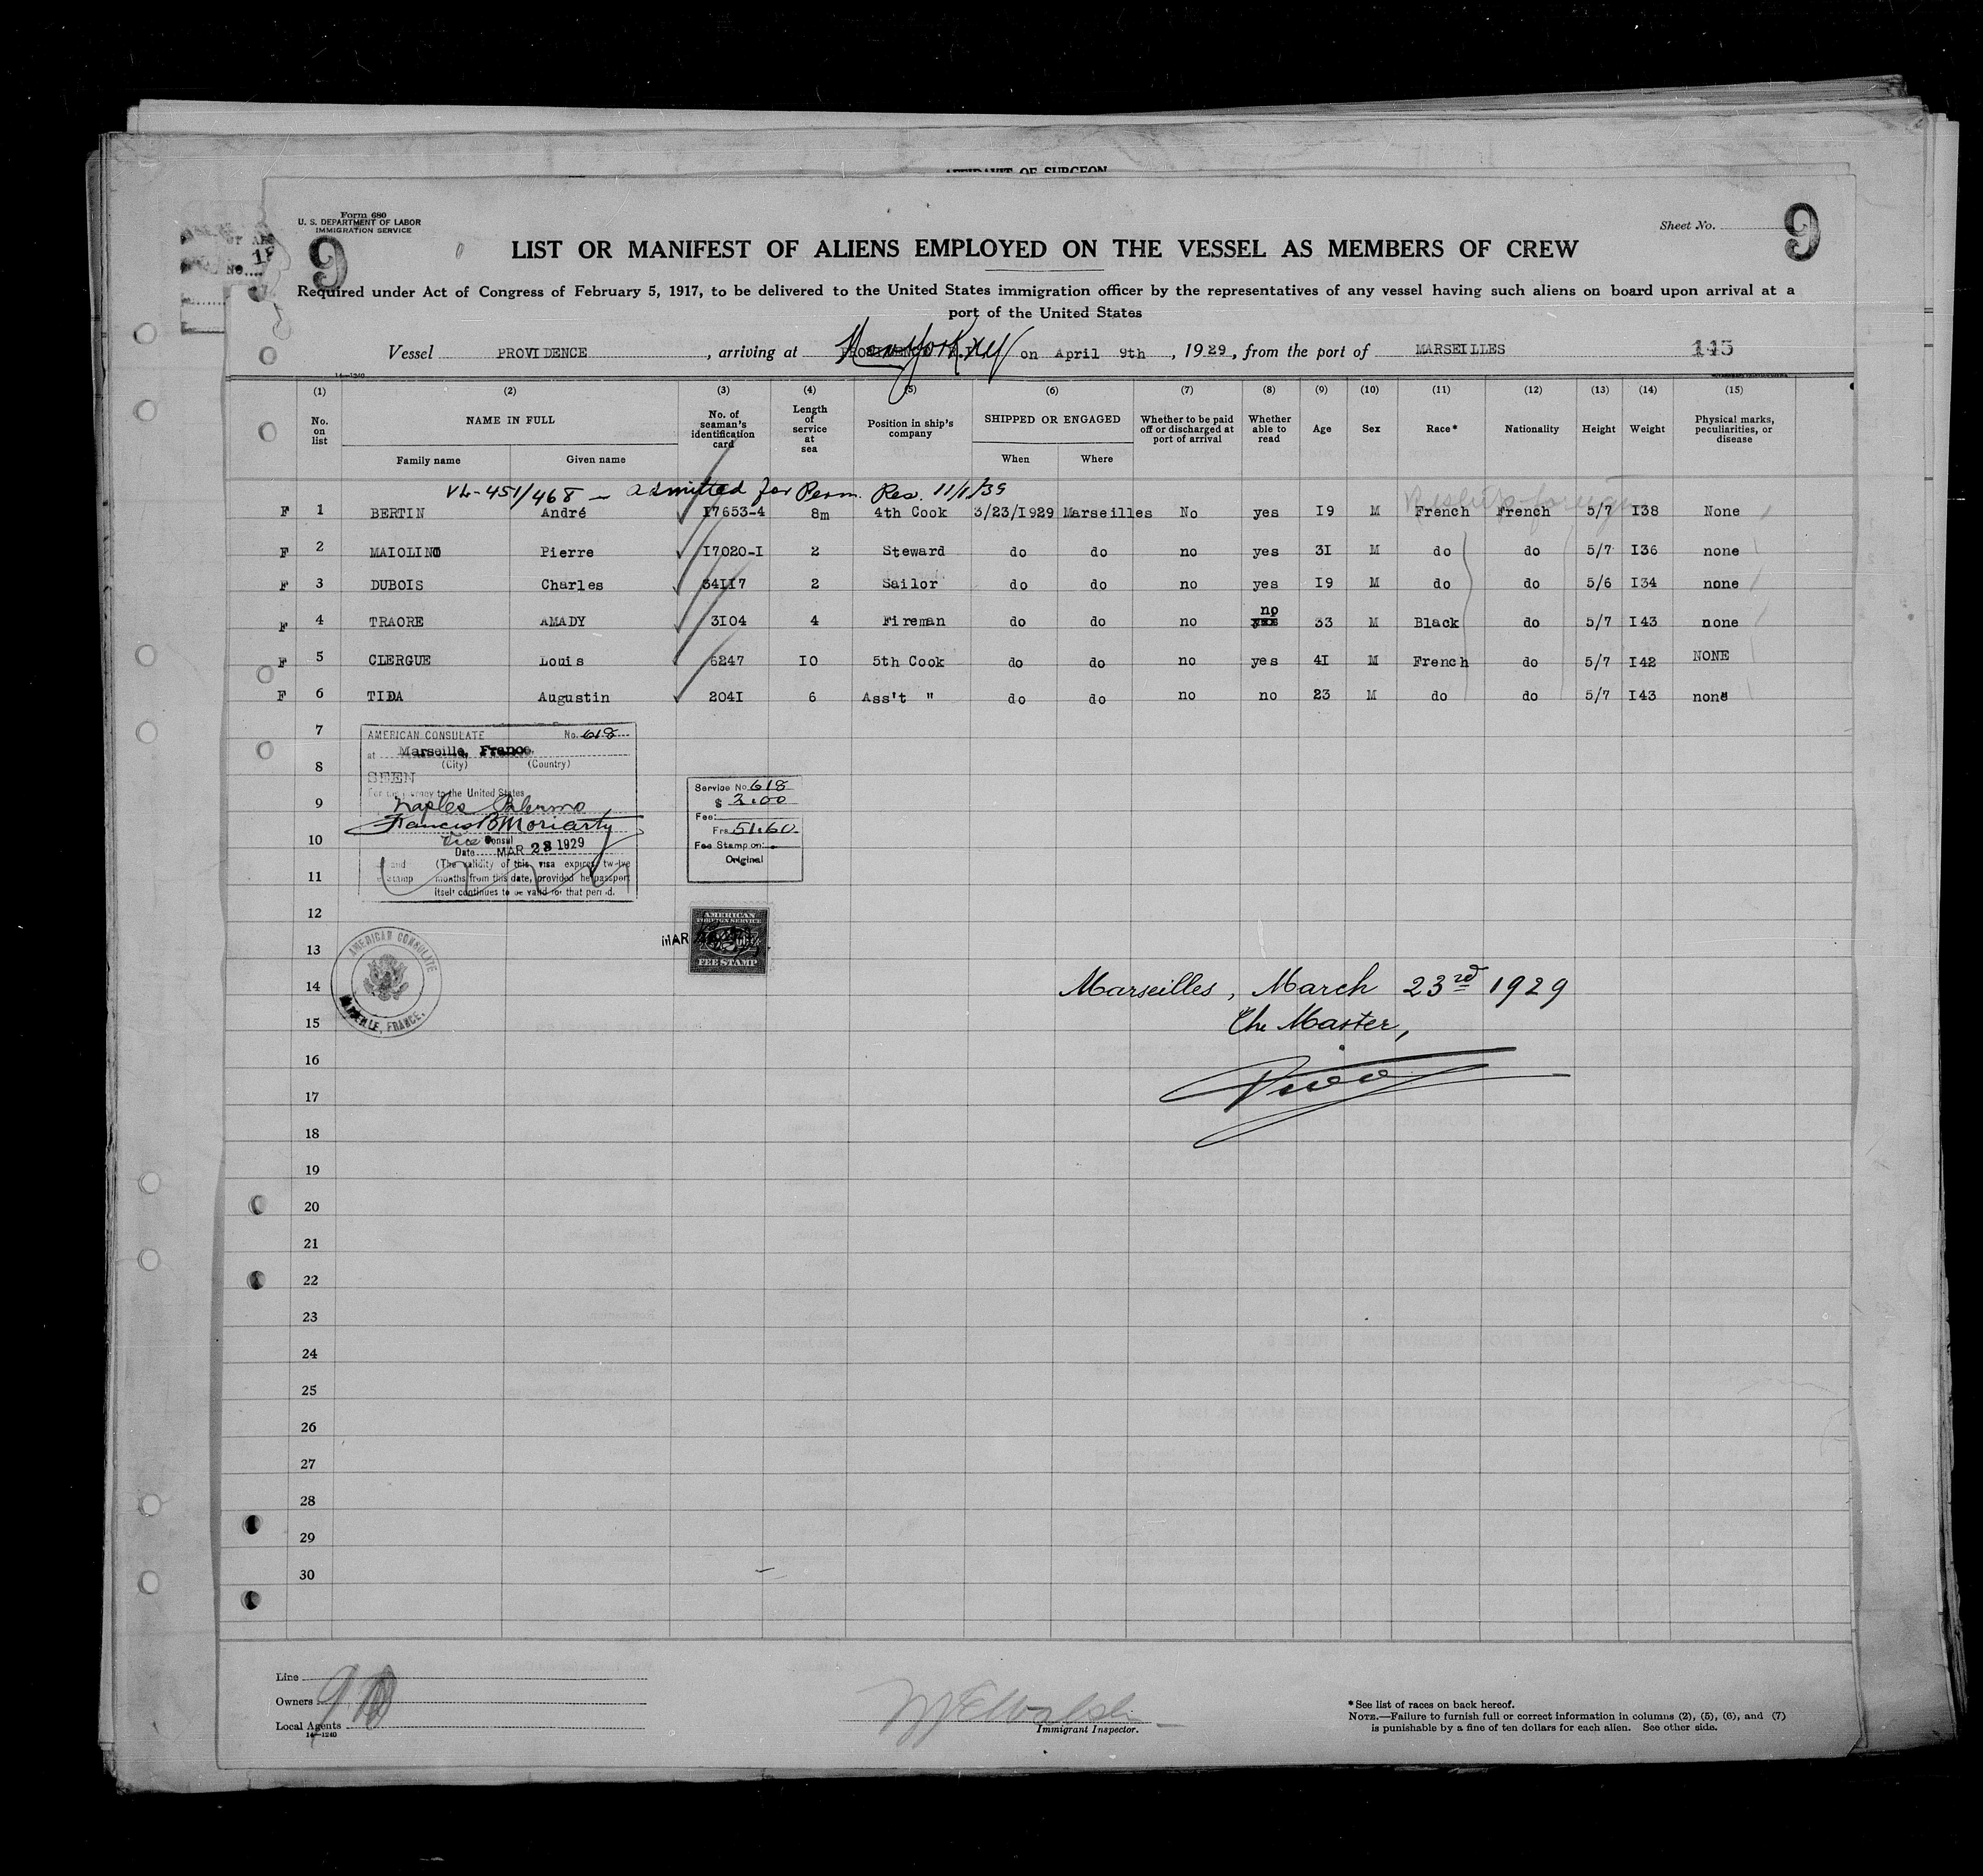 AFFIDAVIT OF SURGEON
Form 680
U. S. DEPARTMENT OF LABOR
IMMIGRATION SERVICE
9
Sheet No.
9
LIST OR MANIFEST OF ALIENS EMPLOYED ON THE VESSEL AS MEMBERS OF CREW
Required under Act of Congress of February 5, 1917, to be delivered to the United States immigration officer by the representatives of any vessel having such aliens on board upon arrival at a
port of the United States
Vessel PROVIDENCE, arriving at New York NY on April 9th, 1929, from the port of MARSEILLES 145
14—1240
(1) (2) (3) (4) (5) (6) (7) (8) (9) (10) (11) (12) (13) (14) (15)
No. on list NAME IN FULL No. of seaman's identification card Length of service at sea Position in ship's company SHIPPED OR ENGAGED Whether to be paid off or discharged at port of arrival Whether able to read Age Sex Race* Nationality Height Weight Physical marks, peculiarities, or disease
Family name Given name When Where
VL-451/468 — Admitted for Perm. Res. 11/1/39
F 1 BERTIN André 17653-4 8m 4th Cook 3/23/1929 Marseilles No yes 19 M French French 5/7 138 None
F 2 MAIOLINO Pierre 17020-1 2 Steward do do no yes 31 M do do 5/7 136 none
F 3 DUBOIS Charles 34117 2 Sailor do do no yes 19 M do do 5/6 134 none
no
F 4 TRAORE AMADY 3104 4 Fireman do do no yes 33 M Black do 5/7 143 none
F 5 CLERGUE Louis 6247 10 5th Cook do do no yes 41 M French do 5/7 142 NONE
F 6 TIDA Augustin 2041 6 Ass't " do do no no 23 M do do 5/7 143 none
7
8
9
10
11
12
13
14
15
16
17
18
19
20
21
22
23
24
25
26
27
28
29
30
AMERICAN CONSULATE No. 618
at Marseille, France.
(City) (Country)
SEEN
For the journey to the United States
Naples Palermo
Francis B Moriarty
Vice Consul
Date MAR 23 1929
(The validity of this visa expires twelve
months from this date, provided the passport
itself continues to be valid for that period.
Service No. 618
$ 2.00
Fee:
Frs 51.60
Fee Stamp on:
Original
MAR
AMERICAN
FOREIGN SERVICE
FEE STAMP
AMERICAN CONSULATE
MARSEILLE, FRANCE.
Marseilles, March 23rd 1929
The Master,
Line
Owners
Local Agents
14—1240
Immigrant Inspector.
*See list of races on back hereof.
NOTE.—Failure to furnish full or correct information in columns (2), (5), (6), and (7)
is punishable by a fine of ten dollars for each alien. See other side.